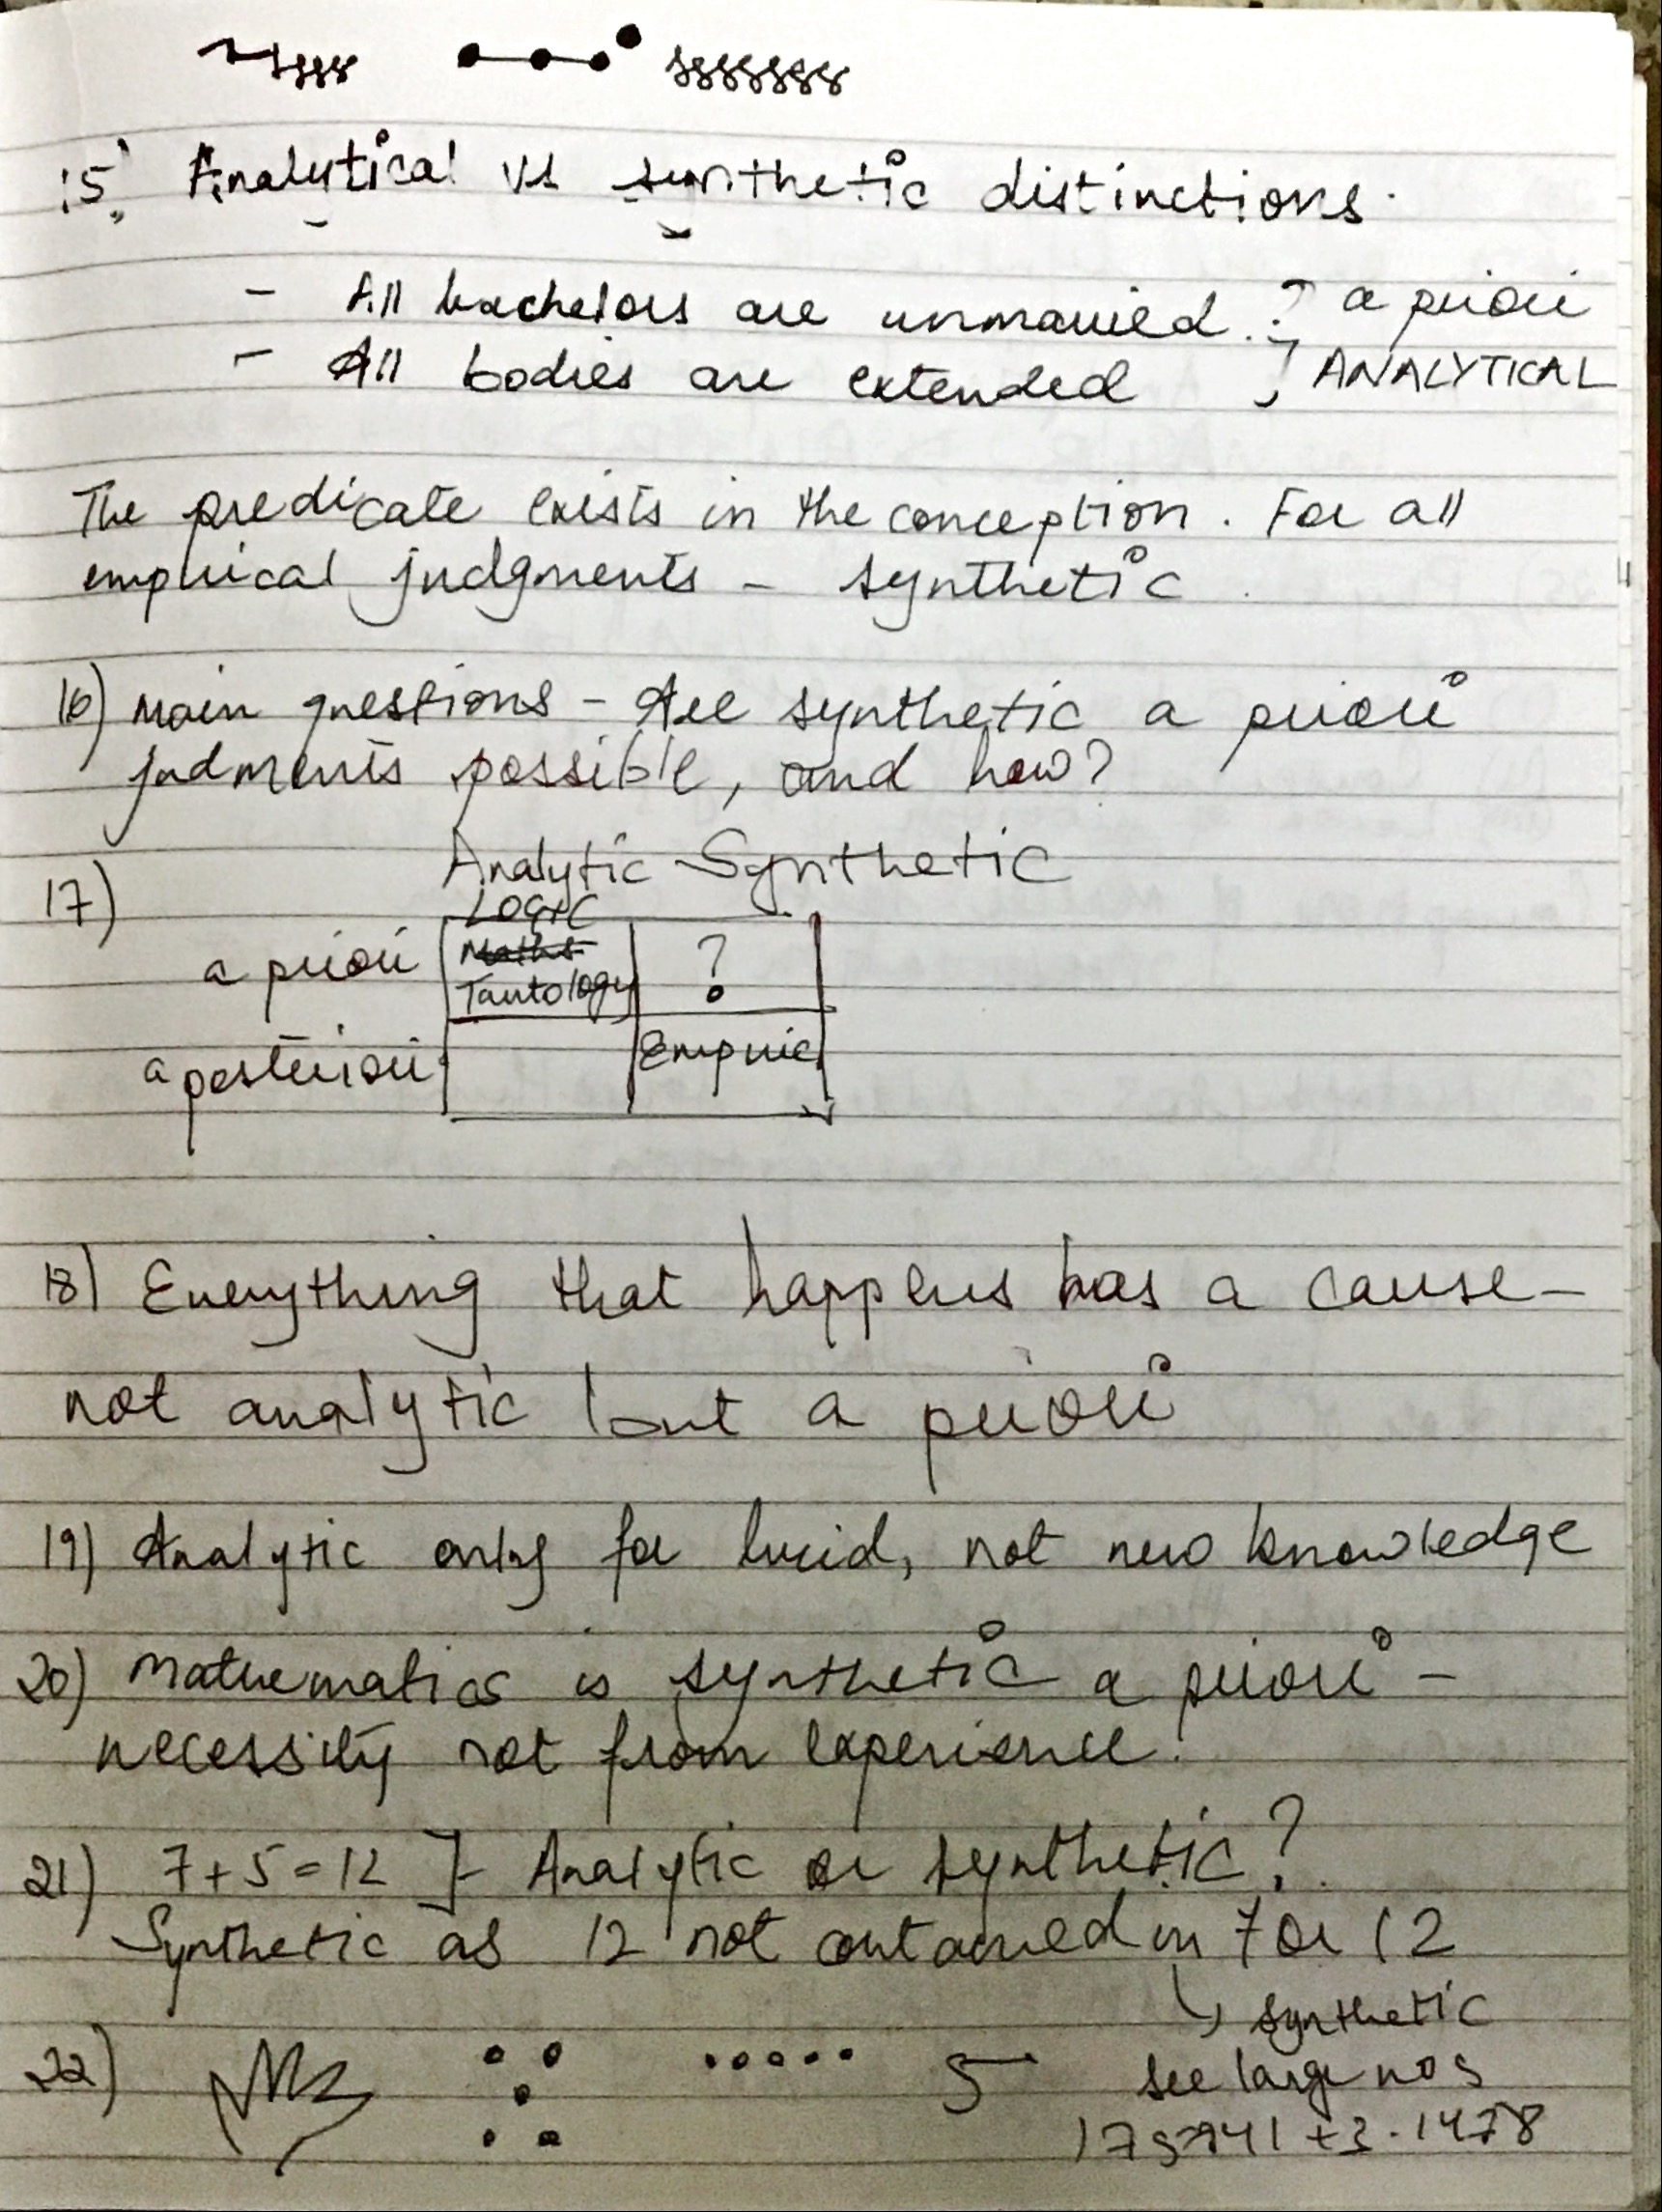 15. Analytical vs synthetic distinctions.
- All bachelors are unmarried. } a priori
- All bodies are extended } ANALYTICAL
The predicate exists in the conception. For all
empirical judgments - synthetic.
16) Main questions - Are synthetic a priori
judments possible, and how?
17) Analytic Synthetic
Logic
a priori Maths ?
Tautology
a posteriori Empiric
18) Everything that happens has a cause -
not analytic but a priori
19) Analytic only for lucid, not new knowledge
20) Mathematics is synthetic a priori -
necessity not from experience.
21) 7+5=12 }- Analytic or synthetic?
Synthetic as 12 not contained in 7 or 12
↳ synthetic
22) 5 see large nos